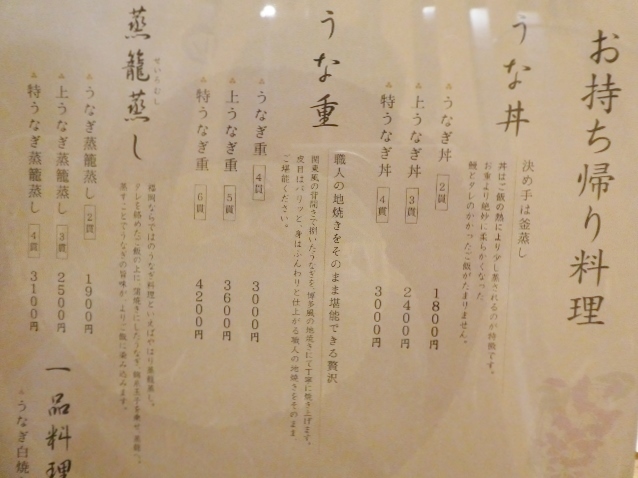 お持ち帰り料理
うな丼
決め手は釜蒸し
丼はご飯の熱により少し蒸されるのが特徴です。
お重より絶妙に柔らかくなった
鰻とタレのかかったご飯がたまりません。
うなぎ丼 2貫 1800円
上うなぎ丼 3貫 2400円
特うなぎ丼 4貫 3000円
うな重
職人の地焼きをそのまま堪能できる贅沢
関東風の背開きで捌いたうなぎを、博多風の地焼きにて丁寧に焼き上げます。
皮目はパリッと、身はふんわりと仕上がる職人の地焼きをそのまま
ご堪能ください。
うなぎ重 4貫 3000円
上うなぎ重 5貫 3600円
特うなぎ重 6貫 4200円
蒸籠蒸し
せいろむし
福岡ならではのうなぎ料理といえばやはり蒸籠蒸し。
タレを絡めたご飯の上に、蒲焼きにしたうなぎ、錦糸玉子を乗せ、蒸籠へ。
蒸すことでうなぎの旨味が、よりご飯に染み込みます。
うなぎ蒸籠蒸し 2貫 1900円
上うなぎ蒸籠蒸し 3貫 2500円
特うなぎ蒸籠蒸し 4貫 3100円
一品料理
うなぎ白焼